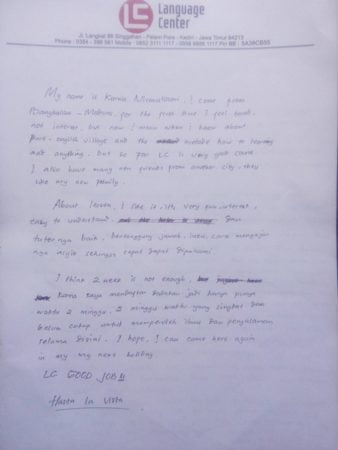 LC Language
Center
Jl. Langkat 88 Singgahan - Palem - Pare - Kediri - Jawa Timur 64213
My name is Kurnia Nirmalasari. I come from
Bangkalan - Madura, for the first time I feel
not interest, but now I when I know about
Pare - english village and the methode how to learning
and anything. But so far LC is very good course.
I also have many new friends from another city. They
like my new family.
About lesson, I like it, it's very fun, interest,
easy to understand dan
tutornya baik, bertanggung jawab, lucu, cara mengajar
nya asyik sehingga cepat dapat dipahami
I think 2 week is not enough,
karna saya mendaftar jadi hanya punya
waktu 2 minggu. 2 minggu waktu yang singkat dan
belum cukup untuk memperoleh ilmu dan pengalaman
selama disini. I hope, I can come here again
in my my next holiday
LC GOOD JOB!!
Hasta la vista